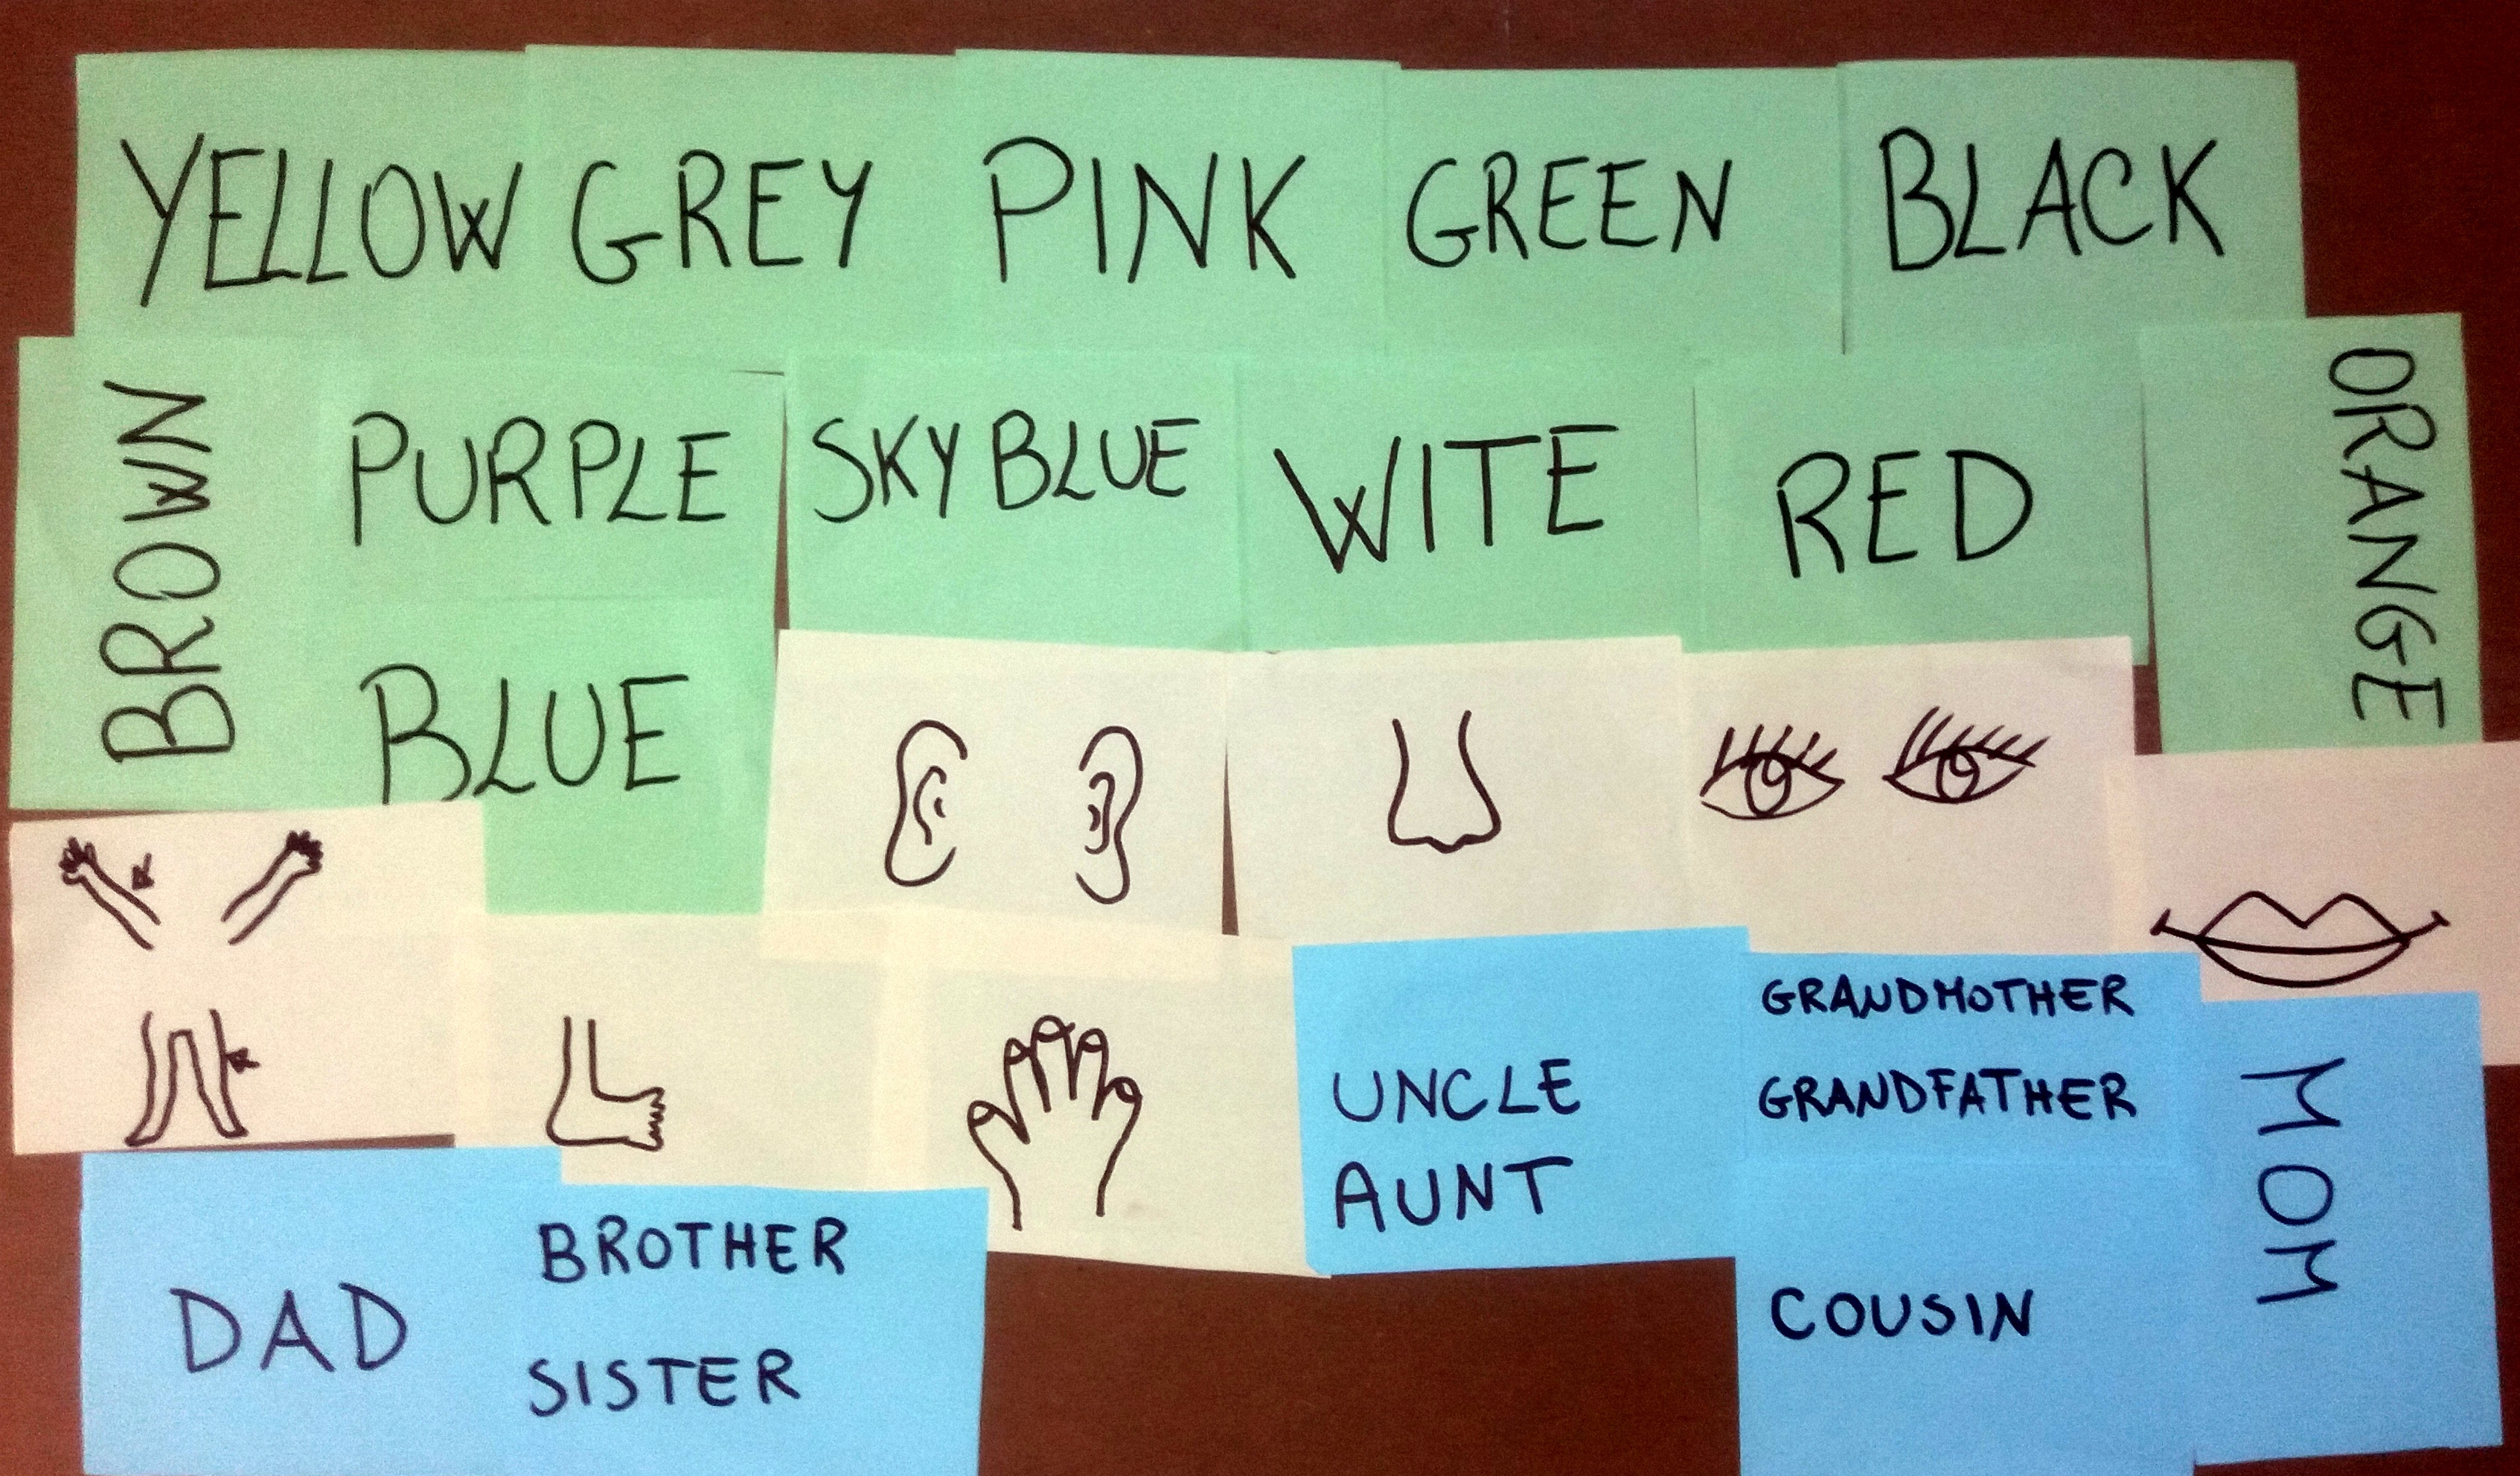 YELLOW GREY PINK GREEN BLACK
BROWN
PURPLE SKY BLUE WITE RED
ORANGE
BLUE
UNCLE
AUNT
GRANDMOTHER
GRANDFATHER
MOM
DAD
BROTHER
SISTER
COUSIN